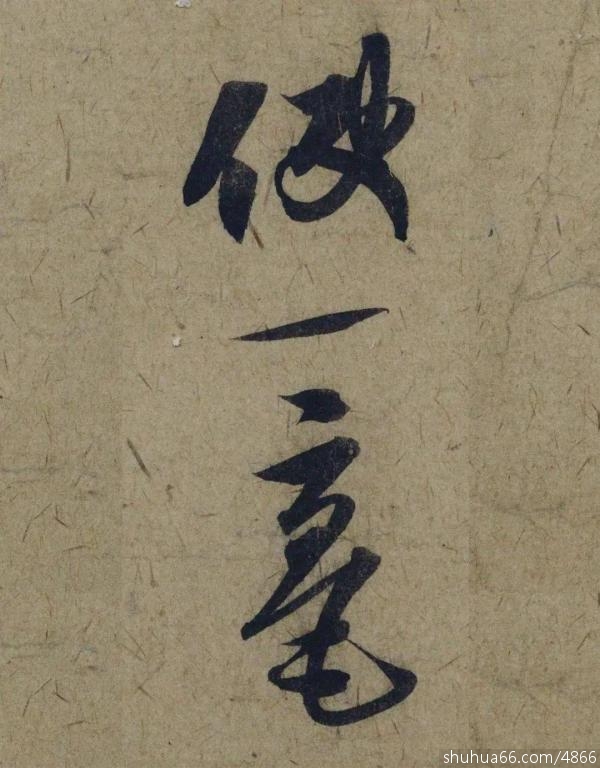 使一毫
shuhua66.com/4866